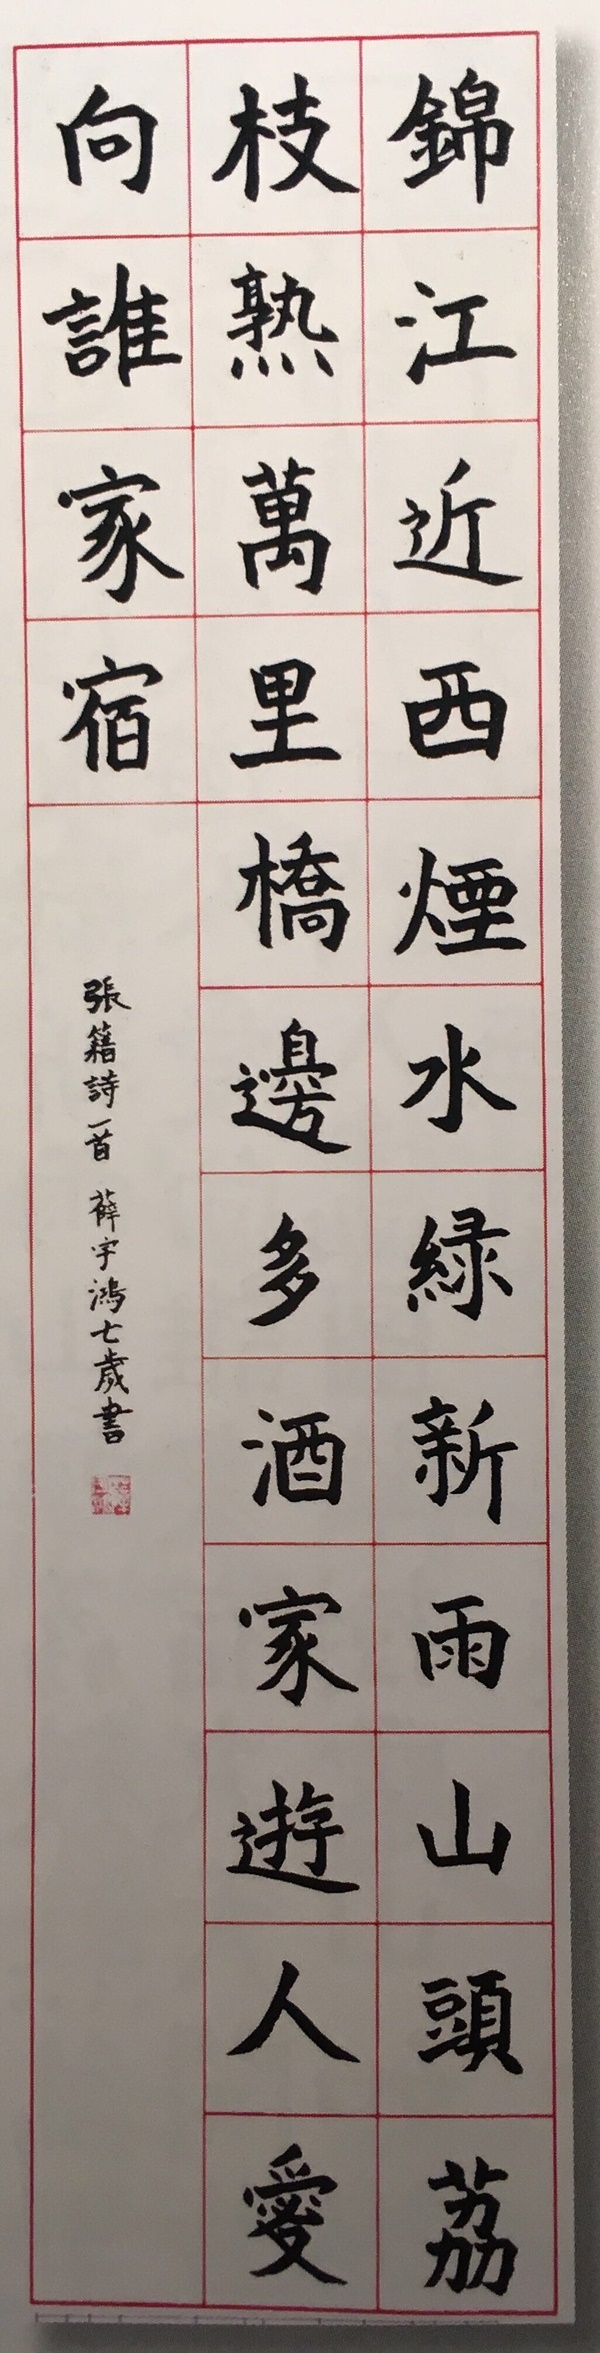 錦江近西煙水綠新雨山頭荔
枝熟萬里橋邊多酒家遊人愛
向誰家宿
張籍詩一首 薛宇鴻七歲書